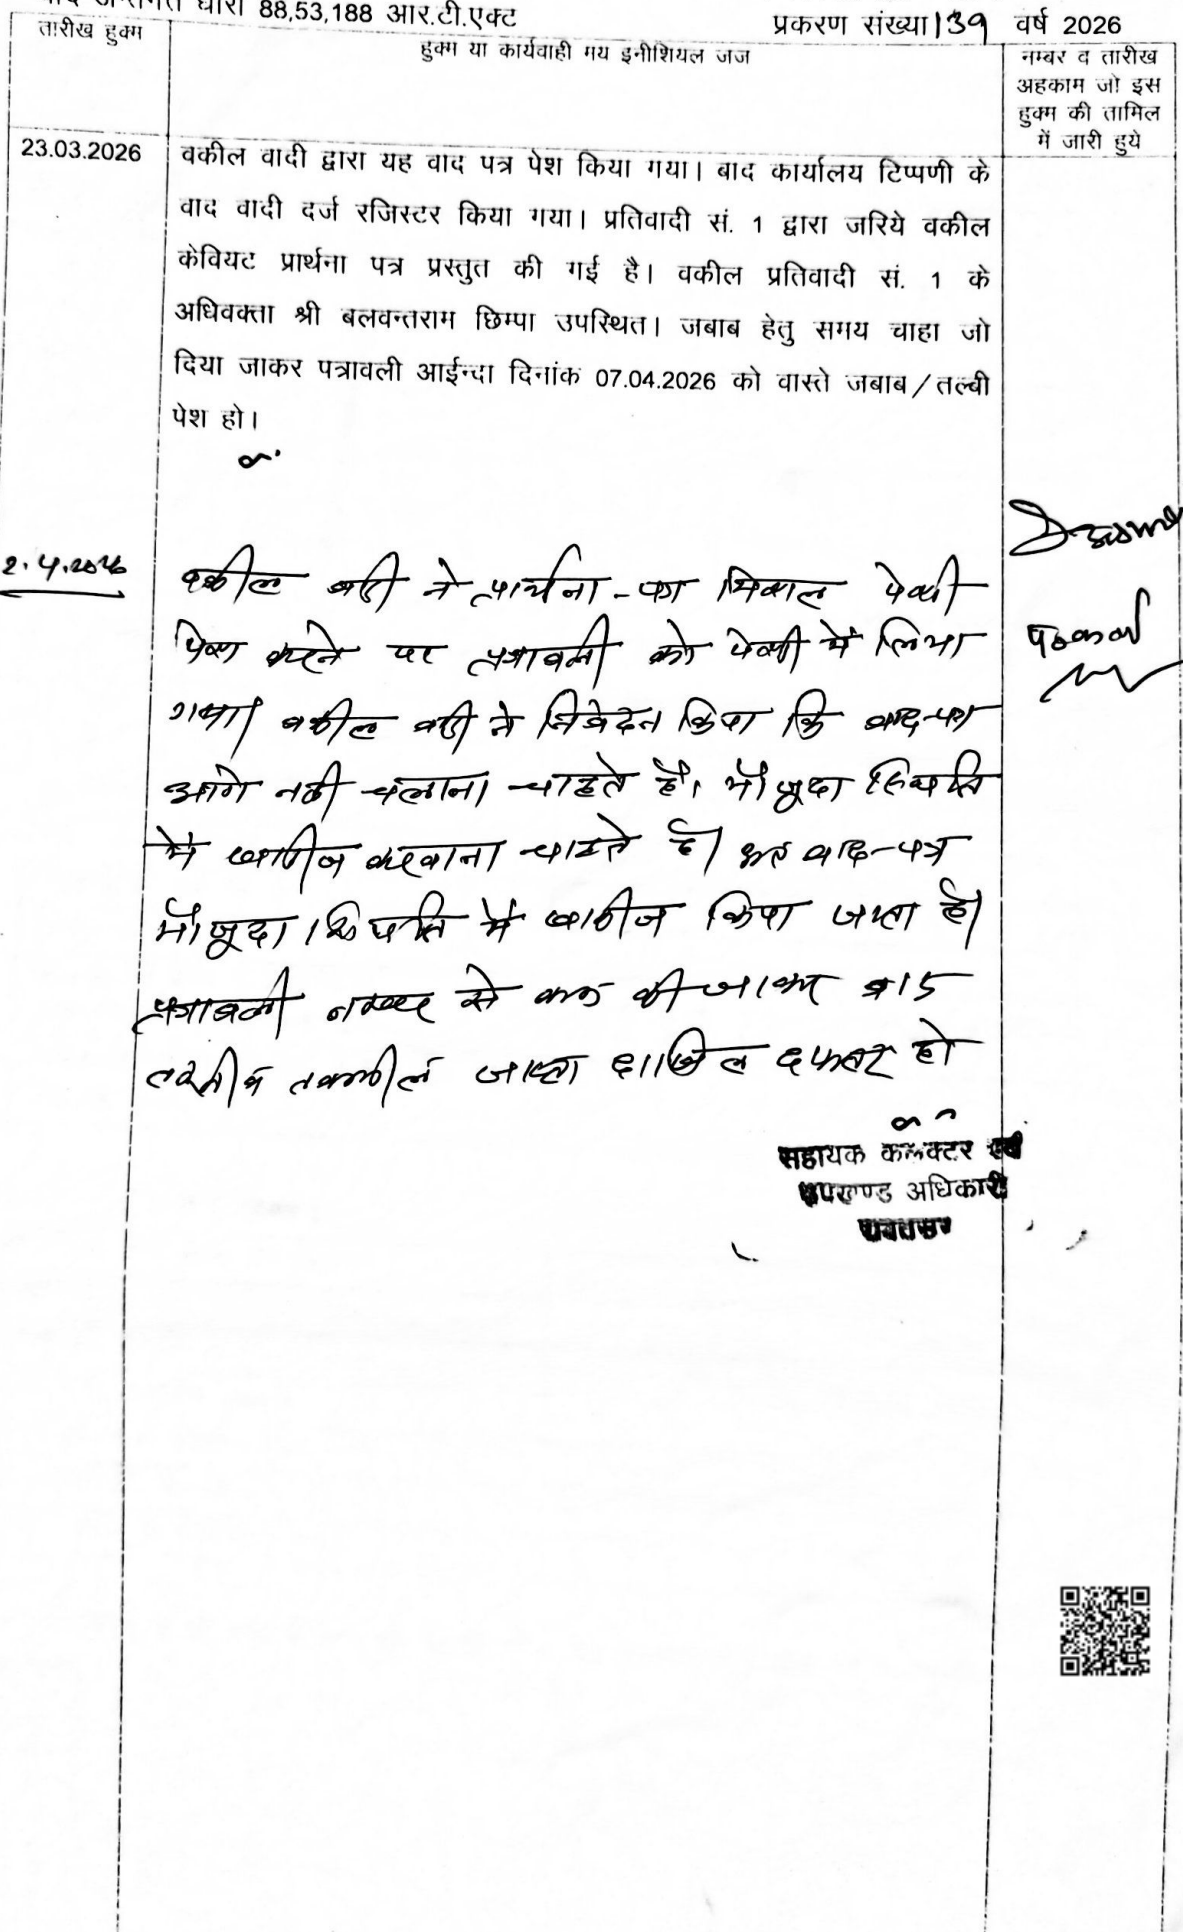 धारा 88,53,188 आर.टी.एक्ट
प्रकरण संख्या 139 वर्ष 2026
तारीख हुक्म
हुक्म या कार्यवाही मय इनीशियल जज
नम्बर व तारीख
अहकाम जो इस
हुक्म की तामिल
में जारी हुये
23.03.2026
वकील वादी द्वारा यह वाद पत्र पेश किया गया। बाद कार्यालय टिप्पणी के
वाद वादी दर्ज रजिस्टर किया गया। प्रतिवादी सं. 1 द्वारा जरिये वकील
केवियट प्रार्थना पत्र प्रस्तुत की गई है। वकील प्रतिवादी सं. 1 के
अधिवक्ता श्री बलवन्तराम छिम्पा उपस्थित। जबाब हेतु समय चाहा जो
दिया जाकर पत्रावली आईन्दा दिनांक 07.04.2026 को वास्ते जबाब/तल्बी
पेश हो।
2.4.2026
वकील वादी ने प्रार्थना-पत्र मिसल पेशी
पेश करने पर पत्रावली को पेशी में लिया
गया। वकील वादी ने निवेदन किया कि वाद-पत्र
आगे नही चलाना चाहते है। मौजूदा स्थिति
में खारीज करवाना चाहते है। अतः वाद-पत्र
मौजूदा स्थिति में खारीज किया जाता है।
पत्रावली नम्बर से कम की जाकर बाद
तरतीब तकमील जाब्ता दाखिल दफ्तर हो
सहायक कलक्टर एवं
उपखण्ड अधिकारी
रावतसर